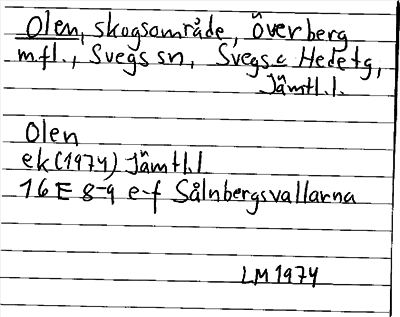 Olen, skogsområde, Överberg
m.fl., Svegs sn, Svegs c Hede tg,
Jämtl.l.
Olen
ek (1974) Jämtl.l
16 E 8-9 e-f Sålnbergsvallarna
LM 1974